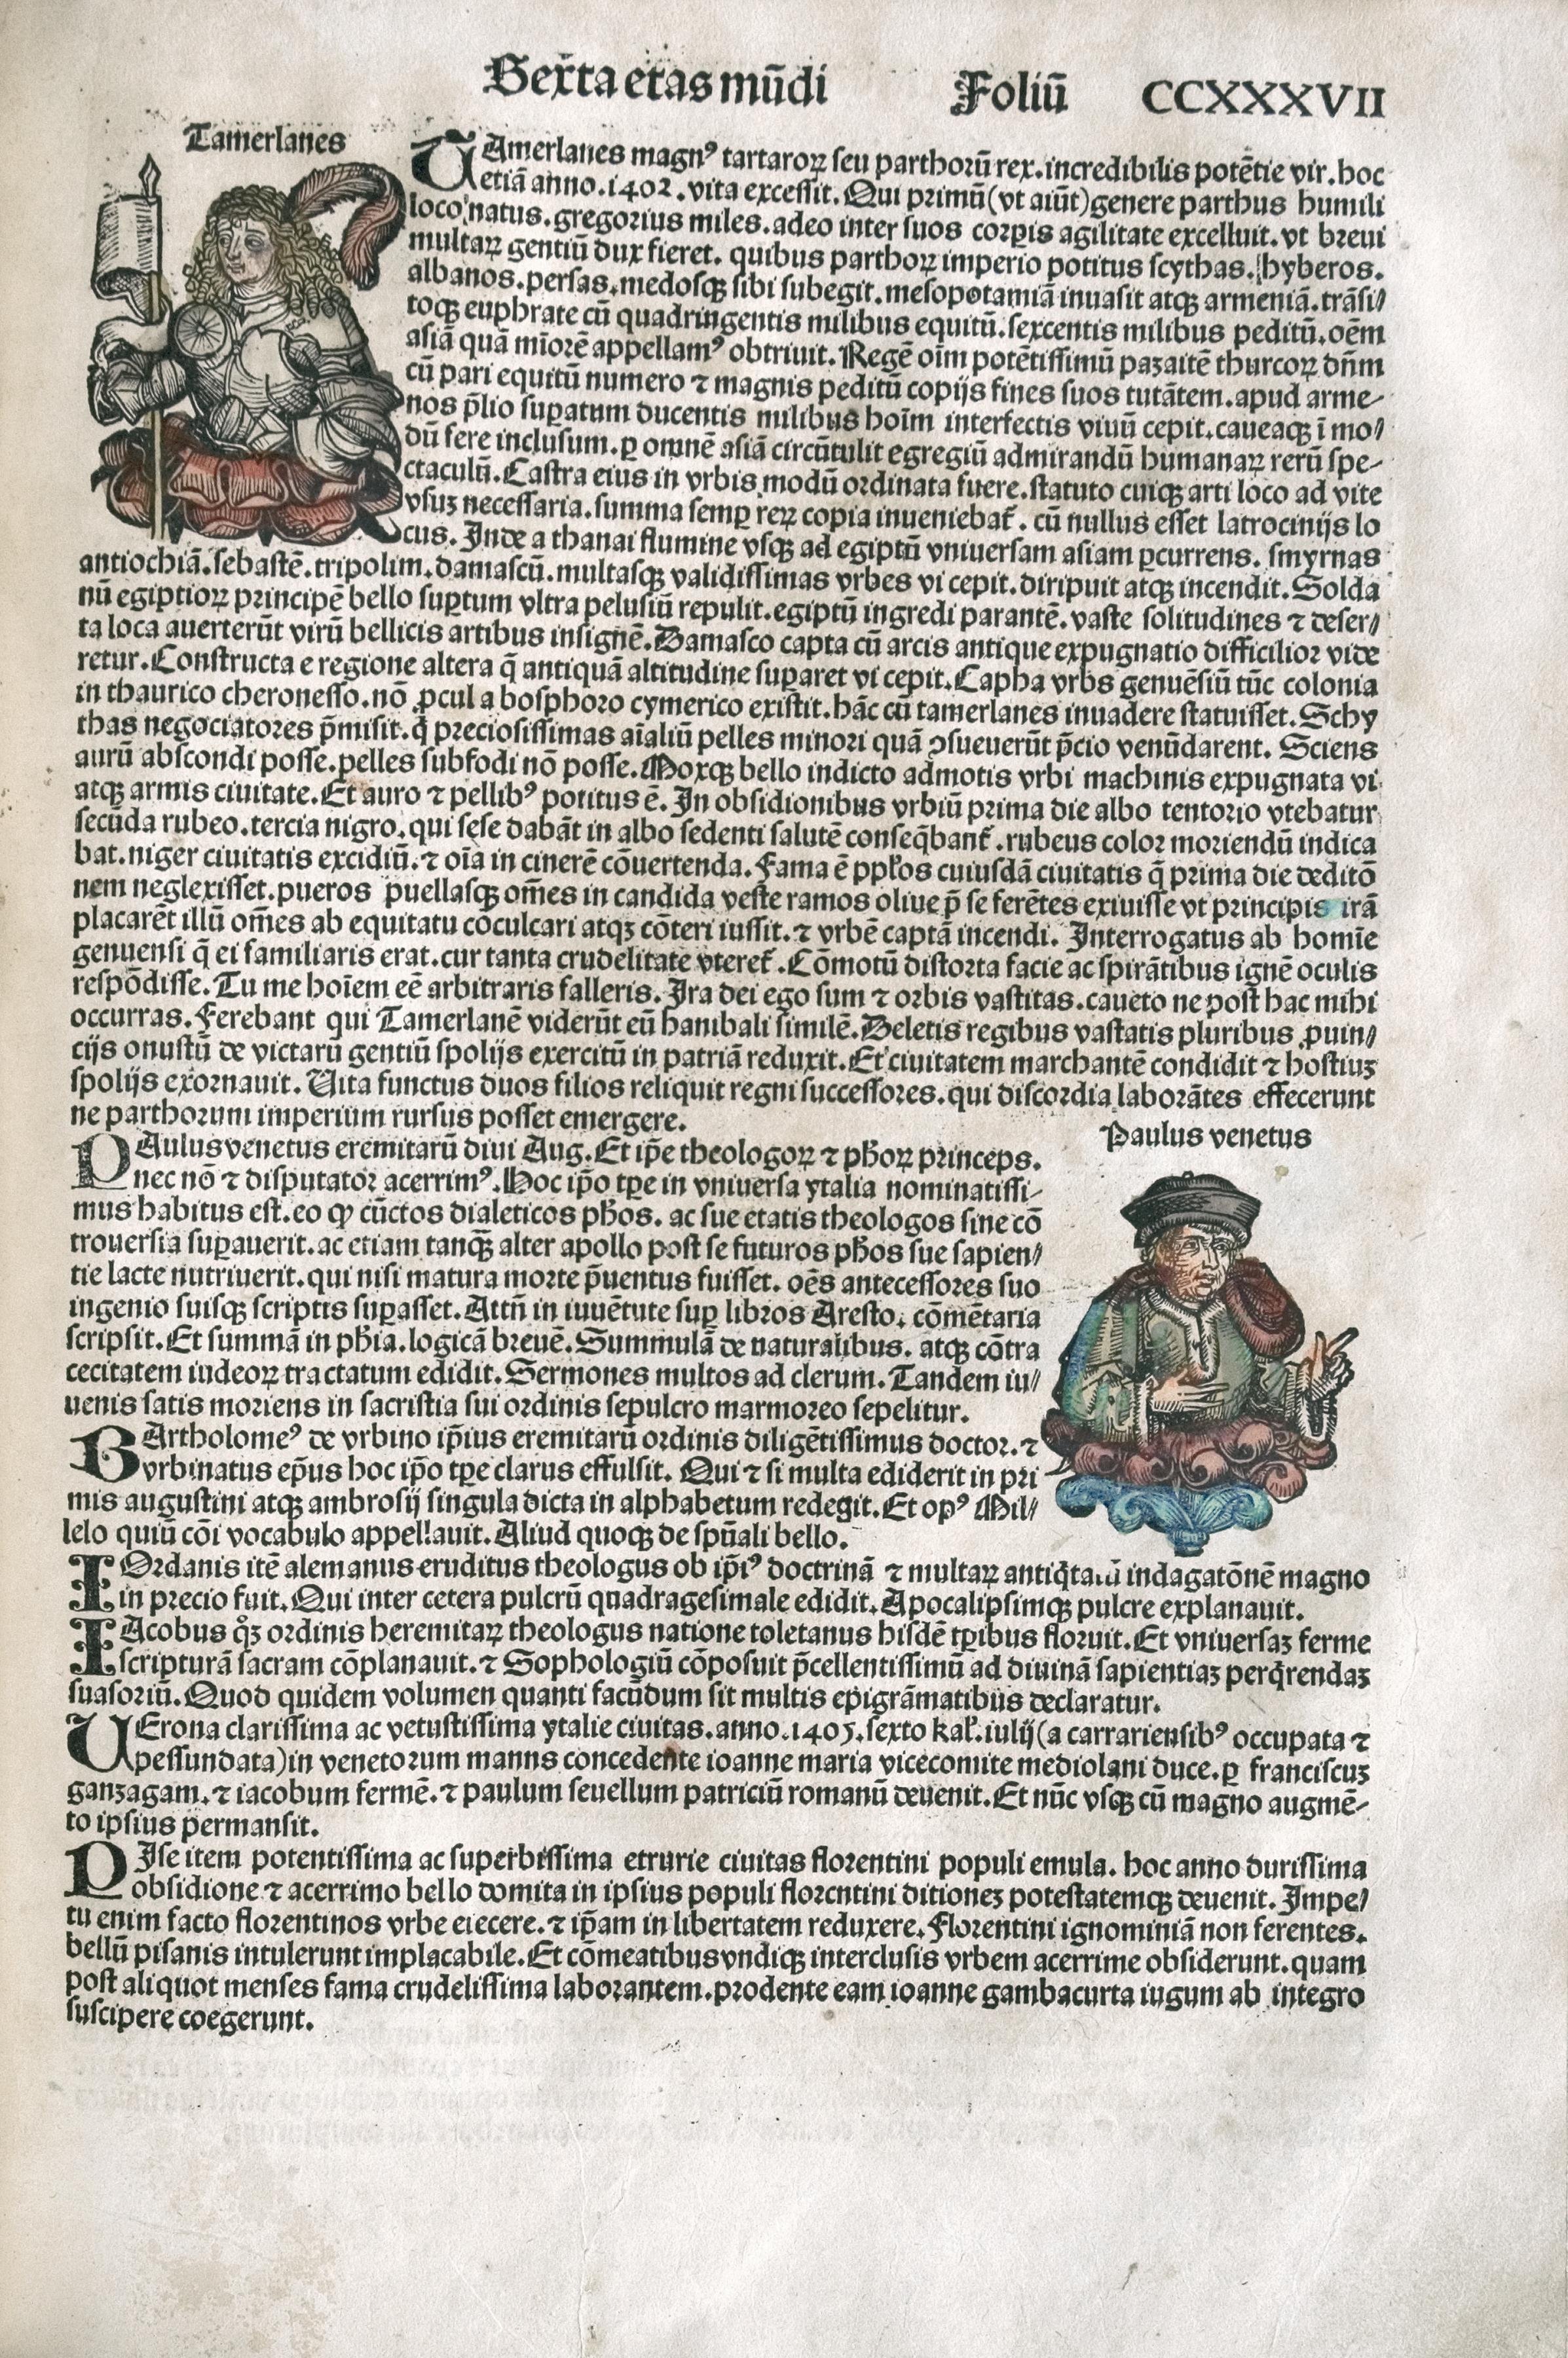 Sexta etas mũdi Foliũ CCXXXVII
Tamerlanes
TAmerlanes magnꝰ tartaroꝝ seu parthorũ rex. incredibilis potẽtie vir. hoc
etiã anno .1402. vita excessit. Qui primũ (vt aiũt) genere parthus humili
loco natus. gregorius miles. adeo inter suos corꝑis agilitate excelluit. vt breui
multaꝝ gentiũ dux fieret. quibus parthoꝝ imperio potitus scythas. hyberos.
albanos. persas. medosqꝫ sibi subegit. mesopotamiã inuasit atqꝫ armeniã. trãsi/
toqꝫ euphrate cũ quadringentis milibus equitũ. sexcentis milibus peditũ. oẽm
asiã quã mĩorẽ appellamꝰ obtriuit. Regẽ oĩm potẽtissimũ pazaitẽ thurcoꝝ dñm
cũ pari equitũ numero ⁊ magnis peditũ copijs fines suos tutãtem. apud arme-
nos p̃lio suꝑatum ducentis milibus hoĩm interfectis viuũ cepit. caueaqꝫ ĩ mo/
dũ fere inclusum. ꝑ omnẽ asiã circũtulit egregiũ admirandũ humanaꝝ rerũ spe-
ctaculũ. Castra eius in vrbis modũ ordinata fuere. statuto cuiqꝫ arti loco ad vite
vsuꝫ necessaria. summa semꝑ reꝝ copia inueniebat̃. cũ nullus esset latrocinijs lo
cus. Inde a thanai flumine vsqꝫ ad egiptũ vniuersam asiam ꝑcurrens. smyrnas
antiochiã. sebastẽ. tripolim. damascũ. multasqꝫ validissimas vrbes vi cepit. diripuit atqꝫ incendit. Solda
nũ egiptioꝝ principẽ bello suꝑtum vltra pelusiũ repulit. egiptũ ingredi parantẽ. vaste solitudines ⁊ deser/
ta loca auerterũt virũ bellicis artibus insignẽ. Damasco capta cũ arcis antique expugnatio difficilior vide
retur. Constructa e regione altera q̃ antiquã altitudine suꝑaret vi cepit. Capha vrbs genuẽsiũ tũc colonia
in thaurico cheronesso. nõ ꝓcul a bosphoro cymerico existit. hãc cũ tamerlanes inuadere statuisset. Schy
thas negociatores p̃misit. q̃ preciosissimas aĩaliũ pelles minori quã ꝯsueuerũt p̃cio venũdarent. Sciens
aurũ abscondi posse. pelles subfodi nõ posse. Moxqꝫ bello indicto admotis vrbi machinis expugnata vi
atqꝫ armis ciuitate. Et auro ⁊ pellibꝰ potitus ẽ. In obsidionibus vrbiũ prima die albo tentorio vtebatur
secũda rubeo. tercia nigro. qui sese dabãt in albo sedenti salutẽ conseq̃bant̃. rubeus color moriendũ indica
bat. niger ciuitatis excidiũ. ⁊ oĩa in cinerẽ cõuertenda. Fama ẽ pp̃los cuiusdã ciuitatis q̃ prima die deditõ
nem neglexisset. pueros puellasqꝫ om̃es in candida veste ramos oliue p̃ se ferẽtes exiuisse vt principis irã
placarẽt illũ om̃es ab equitatu cõculcari atqꝫ cõteri iussit. ⁊ vrbẽ captã incendi. Interrogatus ab homĩe
genuensi q̃ ei familiaris erat. cur tanta crudelitate vteret̃. Cõmotũ distorta facie ac spirãtibus ignẽ oculis
respõdisse. Tu me hoĩem eẽ arbitraris falleris. Ira dei ego sum ⁊ orbis vastitas. caueto ne post hac mihi
occurras. Ferebant qui Tamerlanẽ viderũt eũ hanibali similẽ. Deletis regibus vastatis pluribus ꝓuin/
cijs onustũ de victarũ gentiũ spolijs exercitũ in patriã reduxit. Et ciuitatem marchantẽ condidit ⁊ hostiuꝫ
spolijs exornauit. Uita functus duos filios reliquit regni successores. qui discordia laborãtes effecerunt
ne parthorum imperium rursus posset emergere.
Paulus venetus
PAulus venetus eremitarũ diui Aug. Et ip̃e theologoꝝ ⁊ ph̃oꝝ princeps.
nec nõ ⁊ disputator acerrimꝰ. Hoc ip̃o tꝑe in vniuersa ytalia nominatissi-
mus habitus est. eo ꝙ cũctos dialeticos ph̃os. ac sue etatis theologos sine cõ
trouersia suꝑauerit. ac etiam tanqꝫ alter apollo post se futuros ph̃os sue sapien/
tie lacte nutriuerit. qui nisi matura morte p̃uentus fuisset. oẽs antecessores suo
ingenio suisqꝫ scriptis suꝑasset. Attñ in iuuẽtute suꝑ libros Aresto. cõmẽtaria
scripsit. Et summã in ph̃ia. logicã breuẽ. Summulã de naturalibus. atqꝫ cõtra
cecitatem iudeoꝝ tractatum edidit. Sermones multos ad clerum. Tandem iu/
uenis satis moriens in sacristia sui ordinis sepulcro marmoreo sepelitur.
BArtholomeꝰ de vrbino ip̃ius eremitarũ ordinis diligẽtissimus doctor. ⁊
vrbinatus ep̃us hoc ip̃o tꝑe clarus effulsit. Qui ⁊ si multa ediderit in pri
mis augustini atqꝫ ambrosij singula dicta in alphabetum redegit. Et opꝰ Mil/
lelo quiũ cõi vocabulo appellauit. Aliud quoqꝫ de spũali bello.
IOrdanis itẽ alemanus eruditus theologus ob ip̃iꝰ doctrinã ⁊ multaꝝ antiq̃tatũ indagatõnẽ magno
in precio fuit. Qui inter cetera pulcrũ quadragesimale edidit. Apocalipsimqꝫ pulcre explanauit.
IAcobus q̃ꝫ ordinis heremitaꝝ theologus natione toletanus hisdẽ tꝑibus floruit. Et vniuersaꝫ ferme
scripturã sacram cõplanauit. ⁊ Sophologiũ cõposuit p̃cellentissimũ ad diuinã sapientiaꝫ perq̃rendaꝫ
suasoriũ. Quod quidem volumen quanti facũdum sit multis epigrãmatibus declaratur.
UErona clarissima ac vetustissima ytalie ciuitas. anno .1405. sexto kal̃. iulij (a carrariensibꝰ occupata ⁊
pessundata) in venetorum manns concedente ioanne maria vicecomite mediolani duce. ꝑ franciscuꝫ
ganzagam. ⁊ iacobum fermẽ. ⁊ paulum seuellum patriciũ romanũ deuenit. Et nũc vsqꝫ cũ magno augmẽ-
to ipsius permansit.
PIse item potentissima ac superbissima etrurie ciuitas florentini populi emula. hoc anno durissima
obsidione ⁊ acerrimo bello domita in ipsius populi florentini ditioneꝫ potestatemqꝫ deuenit. Impe/
tu enim facto florentinos vrbe eiecere. ⁊ ip̃am in libertatem reduxere. Florentini ignominiã non ferentes.
bellũ pisanis intulerunt implacabile. Et cõmeatibus vndiqꝫ interclusis vrbem acerrime obsiderunt. quam
post aliquot menses fama crudelissima laborantem. prodente eam ioanne gambacurta iugum ab integro
suscipere coegerunt.